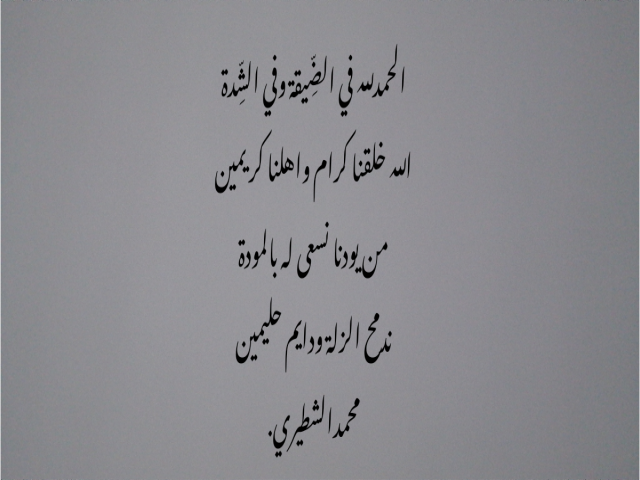 الحمدلله في الضِّيقة وفي الشِّدة
الله خلقنا كرام واهلنا كريمين
من يودنا نسعى له بالمودة
ندمح الزلة ودايم حليمين
محمد الشطيري.